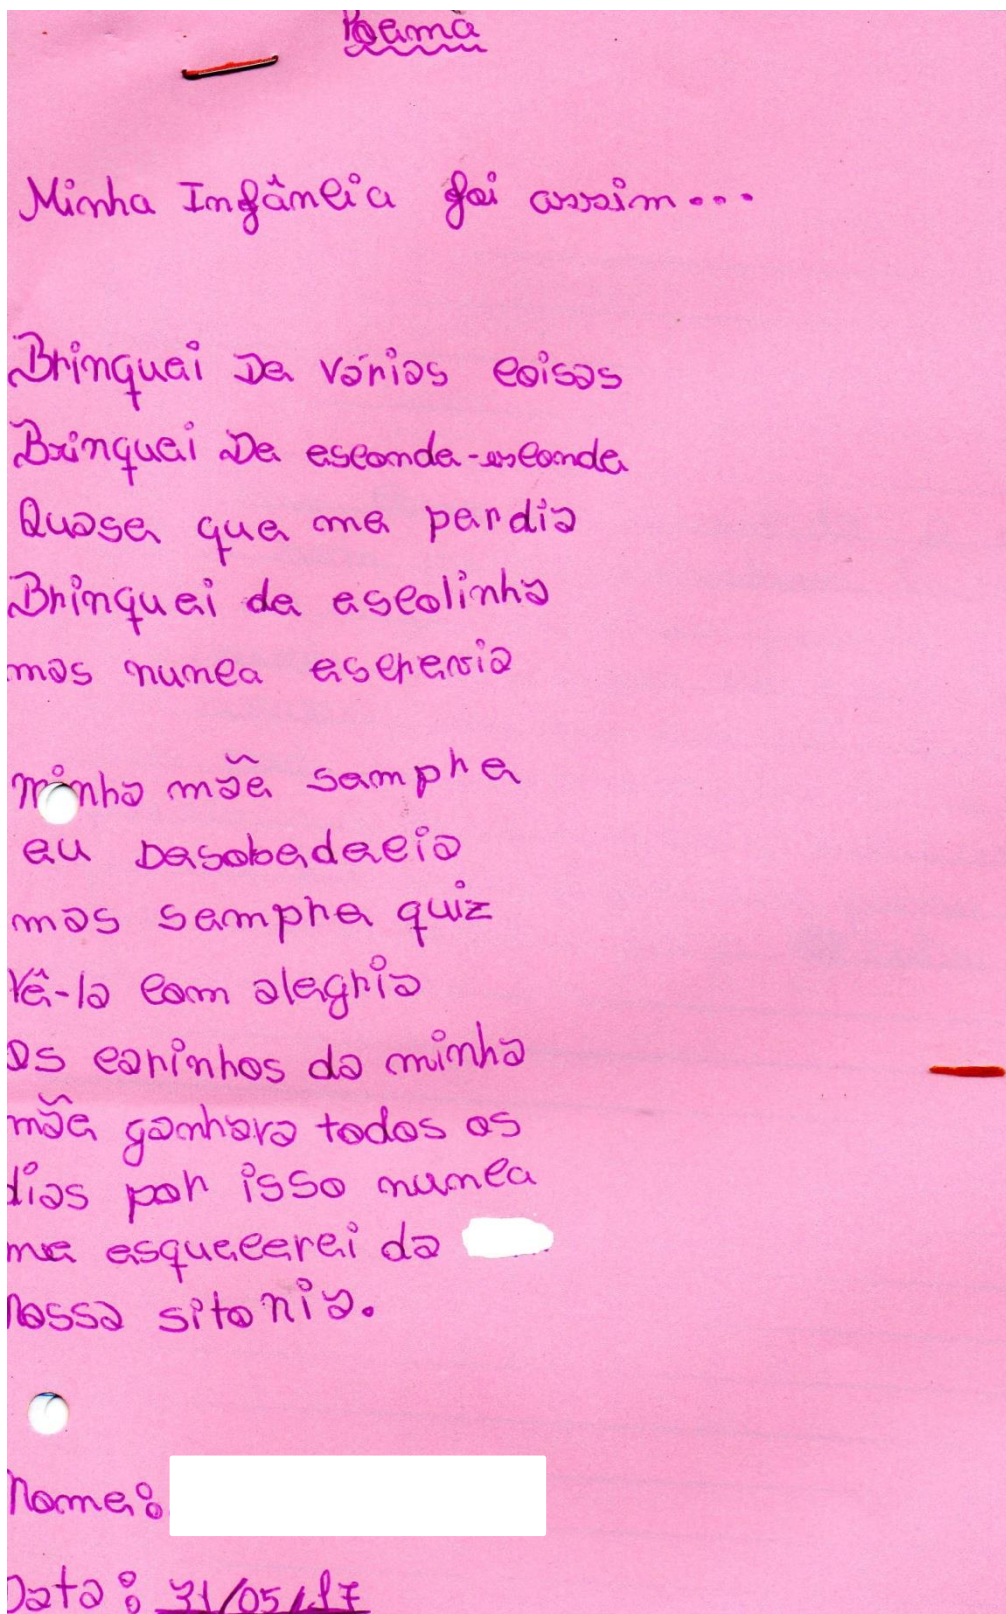 Poema
Minha Infância foi assim...
Brinquei De várias coisas
Brinquei De esconde-esconde
Quase que me perdia
Brinquei de escolinha
mas nunca escrevia
minha mãe sempre
eu Desobedecia
mas sempre quiz
Vê-la com alegria
Os carinhos da minha
mãe ganhava todos os
dias por isso nunca
me esquecerei da
nossa sitonia.
Nome:
Data: 31/05/17